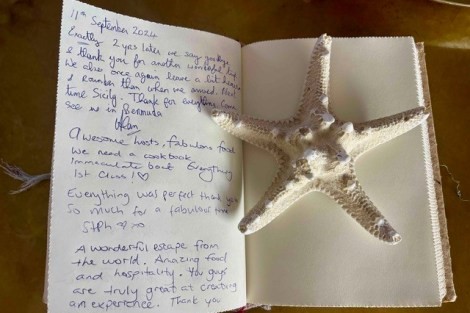 11th September 2024
Exactly 2 yrs later we say goodbye
& thank you for another wonderful trip
We also once again leave a bit heavier
& rounder than when we arrived. Next
time Sicily. Thank for everything. Come
see us in Bermuda
Awesome hosts, fabulous food
We need a cookbook
Immaculate boat Everything
1st Class! ♡
Everything was perfect thank you
So much for a fabulous time
A wonderful escape from
the world. Amazing food
and hospitality. You guys
are truly great at creating
an experience. Thank you